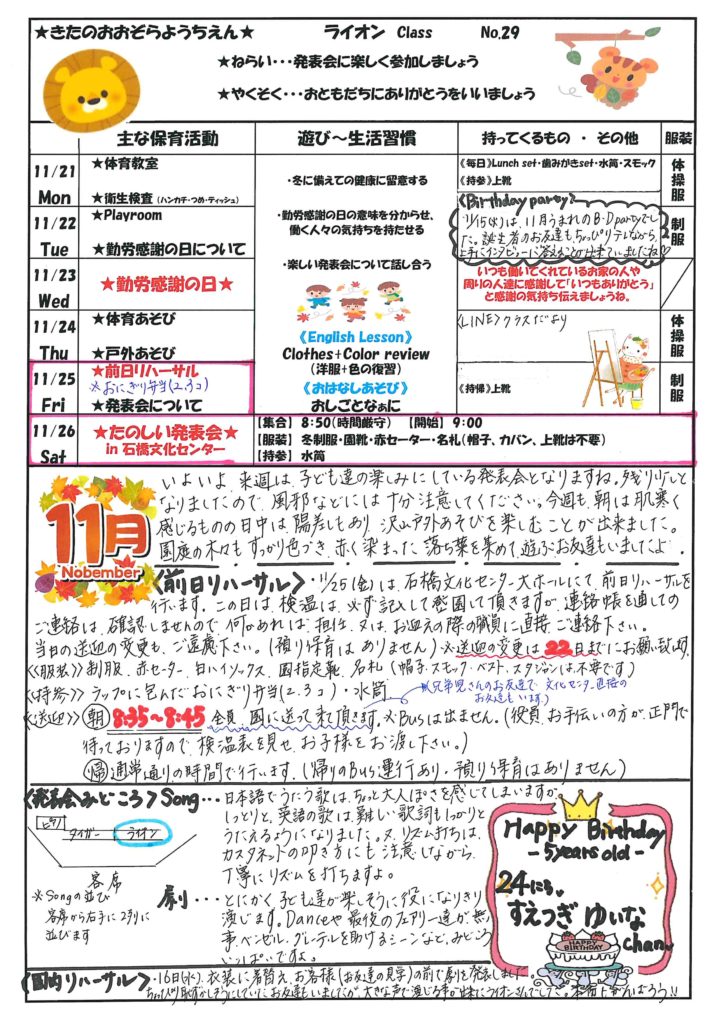 ★きたのおおぞらようちえん★ ライオン Class No.29
★ねらい・・・発表会に楽しく参加しましょう
★やくそく・・・おともだちにありがとうをいいましょう
主な保育活動 遊び～生活習慣 持ってくるもの ・ その他 服装
11/21 Mon
★体育教室
★衛生検査（ハンカチ・つめ・ティッシュ）
11/22 Tue
★Playroom
★勤労感謝の日について
11/23 Wed
★勤労感謝の日★
11/24 Thu
★体育あそび
★戸外あそび
11/25 Fri
★前日リハーサル
※おにぎり弁当(2,3コ)
★発表会について
・冬に備えての健康に留意する
・勤労感謝の日の意味を分からせ、
働く人々の気持ちを持たせる
・楽しい発表会について話し合う
《English Lesson》
Clothes+Color review
（洋服+色の復習）
《おはなしあそび》
おしごとなぁに
《毎日》Lunch set・歯みがきset・水筒・スモック
《持参》上靴
<Birthday party>
11/15(火)は、11月うまれのB・D partyでし
た。誕生者のお友達も、ちょっぴりテレながら、
上手にインタビューに答えることが出来ていましたね♡
いつも働いてくれているお家の人や
周りの人達に感謝して「いつもありがとう」
と感謝の気持ち伝えましょうね。
<LINE>クラスだより
《持帰》上靴
体操服
制服
体操服
制服
11/26 Sat
★たのしい発表会★
in 石橋文化センター
【集合】 8:50（時間厳守） 【開始】 9:00
【服装】 冬制服・園靴・赤セーター・名札（帽子、カバン、上靴は不要）
【持参】 水筒
11月
Nobember
いよいよ、来週は、子ども達の楽しみにしている発表会となりますね。残り少しと
なりましたので、風邪などには十分注意してください。今週も、朝は肌寒く
感じるものの日中は、陽差しもあり、沢山戸外あそびを楽しむことが出来ました。
園庭の木々も、すっかり色づき、赤く染まった落ち葉を集めて遊ぶお友達もいましたよ。
<前日リハーサル>・11/25(金)は、石橋文化センター大ホールにて、前日リハーサルを
行います。この日は、検温は、必ず記入して登園して頂きますが、連絡帳を通しての
ご連絡は、確認しませんので、何かあれば、担任、又は、お迎えの際の職員に直接、ご連絡下さい。
当日の送迎の変更も、ご遠慮下さい。（預り保育はありません）※送迎の変更は22日までにお願い致します。
<<服装>>制服、赤セーター、白いソックス、園指定靴、名札（帽子、スモック・ベスト、スタジャンは不要です）
<<持参>>ラップに包んだおにぎり弁当(2,3コ)・水筒
※兄弟児さんのお友達で、文化センター直接の
お友達もいます。)
<<送迎>>(朝) 8:35～8:45 全員、園に送って来て頂きます。※Busは出ません。（役員、お手伝いの方が正門で
待っておりますので、検温表を見せ、お子様をお渡し下さい。）
(帰)通常通りの時間で行います。（帰りのBus運行あり・預り保育はありません）
<発表会みどころ> Song・・・日本語でうたう歌は、ちょっと大人ぽさを感じてしまいますが、
しっとりと、英語の歌は、難しい歌詞もしっかりと
うたえるようになりました。又、リズム打ちは、
カスタネットの叩き方にも注意しながら、
丁寧にリズムを打ちますよ。
ピアノ
タイガー ライオン
客席
※Songの並び
客席から右手に2列に
並びます
劇・・・とにかく子ども達が楽しそうに役になりきり
演じます。Danceや最後のフェアリー達が無
事ヘンゼル、グレーテルを助けるシーンなど、みどころ
いっぱいですよ。
Happy Birthday
-5years old-
24にち♥
すえつぎ ゆいな
chan♥
HAPPY BIRTHDAY
<園内リハーサル>・16日(水)、衣装に着替え、お客様（お友達の見学）の前で劇を発表しました。
ちょっぴり恥ずかしそうにしていたお友達もいましたが、大きな声で演じる事が出来たライオンさんでした。本番もがんばろう!!